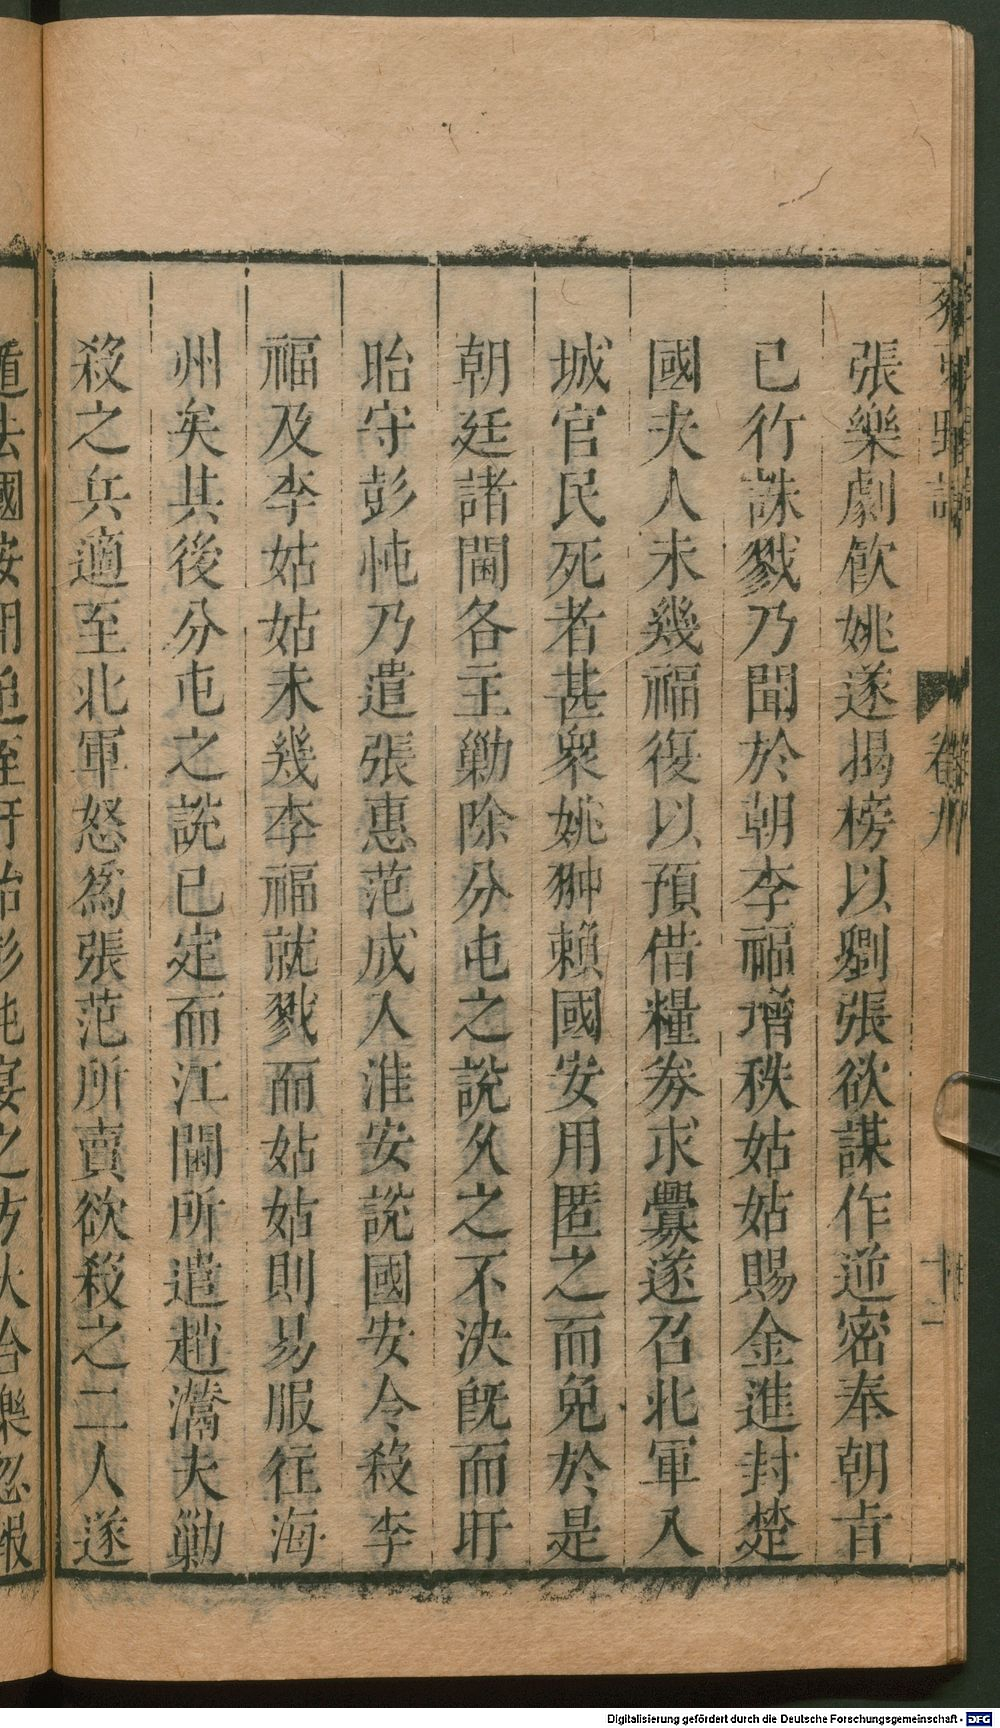 張樂劇飲姚遂揭榜以劉張欲謀作逆密奉朝㫖
已行誅戮乃聞於朝李福增秩姑姑賜金進封楚
國夫人未幾福復以預借糧券求釁遂召北軍入
城官民死者甚衆姚翀賴國安用匿之而免於是
朝廷諸閫各主勦除分屯之說久之不決旣而盱
眙守彭忳乃遣張惠范成入淮安說國安令殺李
福及李姑姑未幾李福就戮而姑姑則易服往海
州矣其後分屯之說已定而江閫所遣趙㵯夫勦
殺之兵適至北軍怒爲張范所賣欲殺之二人遂
卷九
十二
Digitalisierung gefördert durch die Deutsche Forschungsgemeinschaft - DFG